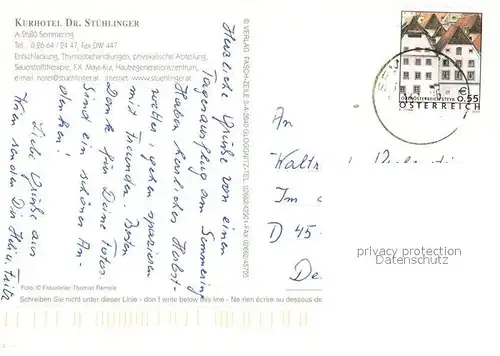 KURHOTEL DR. STÜHLINGER
A 2680 Semmering
Tel. 0 26 64 / 24 47, Fax DW 447
Entschlackung, Thymusbehandlungen, physikalische Abteilung,
Sauerstofftherapie, F.X. Mayr-Kur, Hautregenerationszentrum,
e-mail: hotel@stuehlinger.at internet: www.stuehlinger.at
Herzliche Grüße von einem
Tagesausflug am Semmering
Haben herrliches Herbst-
wetter, gehen spazieren
mit Freunden. Besten
Dank für Deine Fotos.
Sind ein schönes An-
denken!
Liebe Grüße aus
Wien senden Dir Heli u. Fritz
Foto: © Fotoatelier Thomas Remele
Schreiben Sie nicht unter dieser Linie - don't write below this line - Ne rien écrire au dessous de
© VERLAG FASCH-ZEILE 3-A-2640 GLOGGNITZ-TEL. 02662/42561-FAX 02662/45705
€ 0,55
ÖSTERREICH
An
D 45
privacy protection
Datenschutz